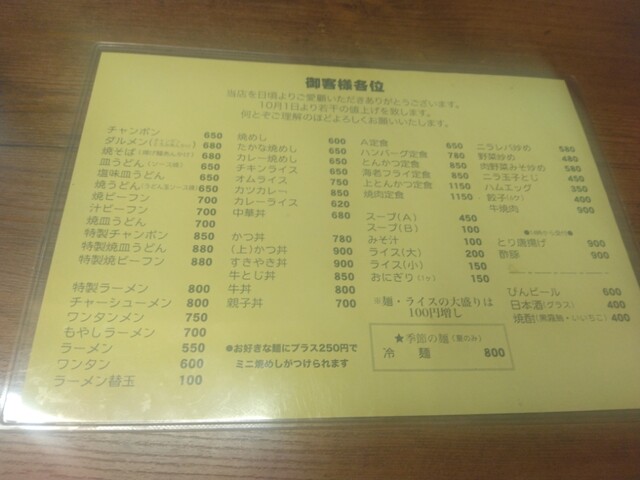 御客様各位
当店を日頃よりご愛顧いただきありがとうございます。
10月1日より若干の値上げを致します。
何とぞご理解のほどよろしくお願いいたします。
チャンポン 650
ダルメン 680
焼そば(焼き麺あんかけ) 680
皿うどん(ソース焼) 650
塩味皿うどん 650
焼うどん(うどん玉ソース焼) 650
焼ビーフン 700
汁ビーフン 700
焼皿うどん 700
特製チャンポン 850
特製焼皿うどん 880
特製焼ビーフン 880
特製ラーメン 800
チャーシューメン 800
ワンタンメン 750
もやしラーメン 700
ラーメン 550
ワンタン 600
ラーメン替玉 100
焼めし 600
たかな焼めし
カレー焼めし
チキンライス 650
オムライス 750
カツカレー 850
カレーライス 620
中華丼 680
かつ丼 780
(上)かつ丼 900
すきやき丼 900
牛とじ丼 850
牛丼 800
親子丼 700
●お好きな麺にプラス250円で
ミニ焼めしがつけられます
A定食 650
ハンバーグ定食 780
とんかつ定食 850
海老フライ定食 850
上とんかつ定食 1150
焼肉定食 1150
スープ(A) 450
スープ(B) 100
みそ汁 100
ライス(大) 200
ライス(小) 150
おにぎり(1ヶ) 150
※麺・ライスの大盛りは
100円増し
★季節の麺(夏のみ)
冷麺 800
ニラレバ炒め 580
野菜炒め 480
肉野菜みそ炒め 580
ニラ玉子とじ 450
ハムエッグ 350
餃子 400
牛焼肉 900
とり唐揚げ 900
酢豚 900
びんビール 600
日本酒(グラス) 400
焼酎(黒霧島・いいちこ) 400